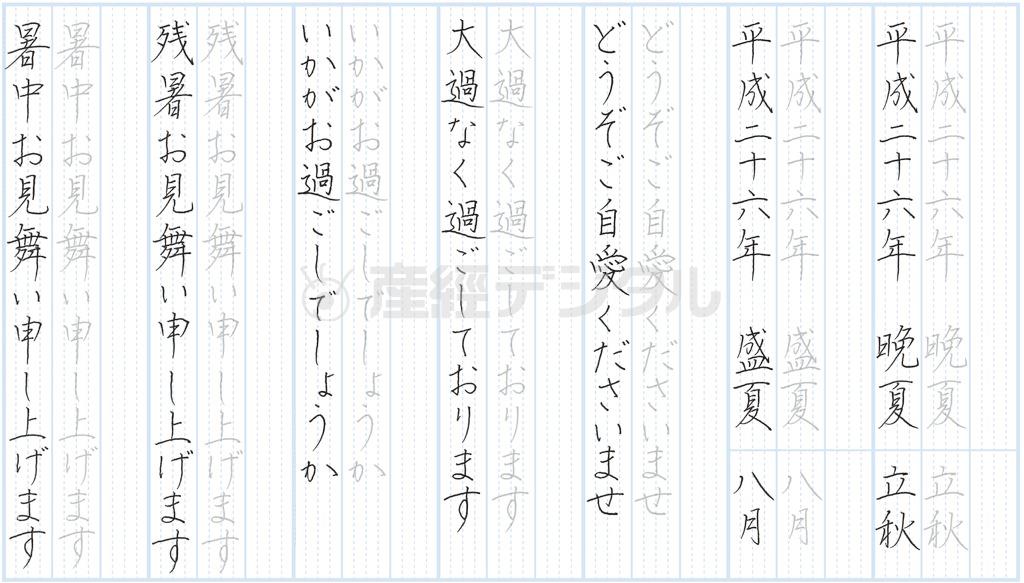 平成二十六年 晩夏
平成二十六年 晩夏
立秋
立秋
平成二十六年 盛夏
平成二十六年 盛夏
八月
八月
どうぞご自愛くださいませ
どうぞご自愛くださいませ
大過なく過ごしております
大過なく過ごしております
いかがお過ごしでしょうか
いかがお過ごしでしょうか
残暑お見舞い申し上げます
残暑お見舞い申し上げます
暑中お見舞い申し上げます
暑中お見舞い申し上げます
産經デジタル